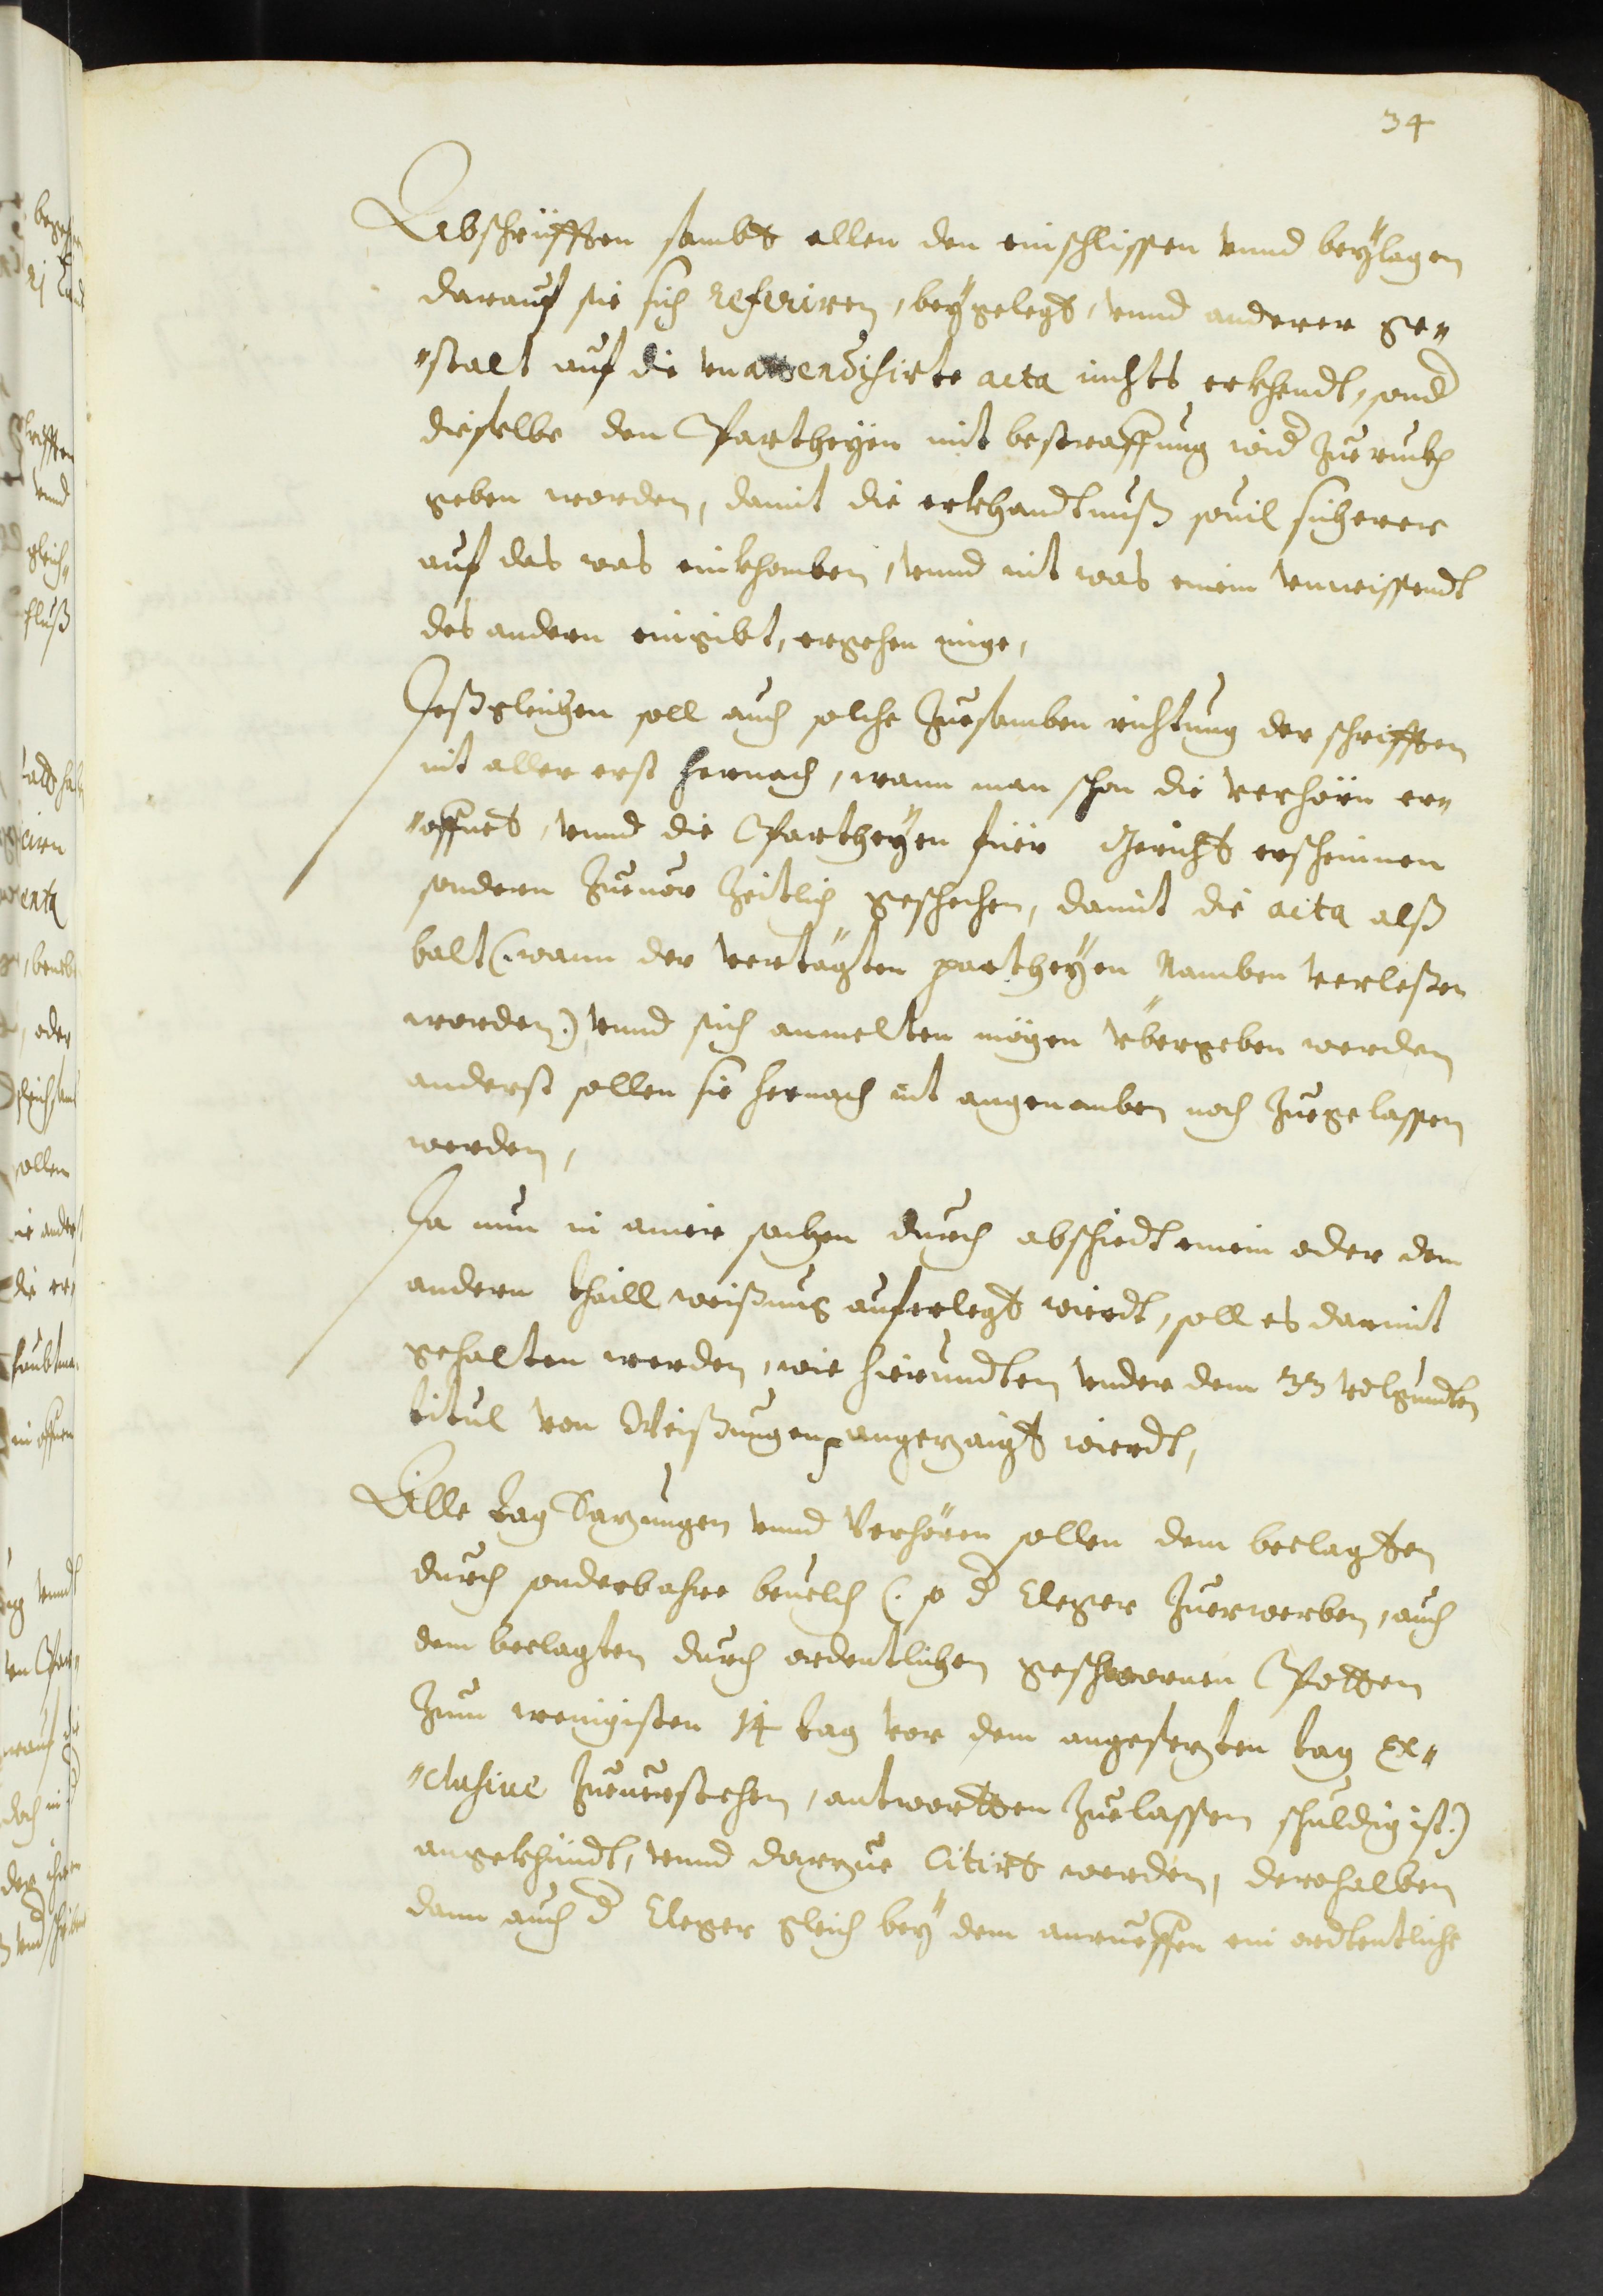 34
Abschrüfften sambt allen den einschlissen vnnd beÿlagen
darauf sie sich referiren, beÿgelegt, vnnd anderer ge„
„stalt auf die vna endisirte acta nichts erkhendt, sond
dieselbe den Partheÿen mit bestraffung wid Zuerukh
geben worden, damit die erkhandtnuß souil sicherer
auf das was einkhomben, vnnd nit was einem vnwissendt
des andern eingibt, ergehen müge,
Deßgleichen soll auch solche Zuesamben richtung der schrifften
nit aller erst hernach, wann man schon die verhörn er„
„offnet, vnnd die Partheÿen füer Gericht erscheinnen
sondern Zueuor Zeitlich geschechen, damit die acta alß
balt (:wann der vertägten partheÿen Namben verleßen
worden:) vnnd sich anmelten mögen vbergeben werden
anderst sollen sie hernach nit angenomben noch Zuegelassen
werden,
Da nun in ainer sachen durch abschiedt einem oder dem
andern thaill weißung auferlegt wierdt, soll es darmit
gehalten werden, wie hierundten vnder dem 33 volgundten
titul von Weißungen angezaigt wierdt,
Alle tag Sazungen vnnd Verhören sollen dem beclagten
durch sonderbahre beuelch (: so d Cleger Zuerwerben, auch
dem beclagten durch ordentlichen geschwornen Potten
Zum wenigisten 14 tag vor dem angesezten tag ex„
„clusiue Zueuerstehen, antwortten Zuelassen schuldig ist:)
angekhündt, vnnd darzue Citirt werden, derohalben
dann auch d Cleger gleich beÿ dem anrueffen ein ordtentliche